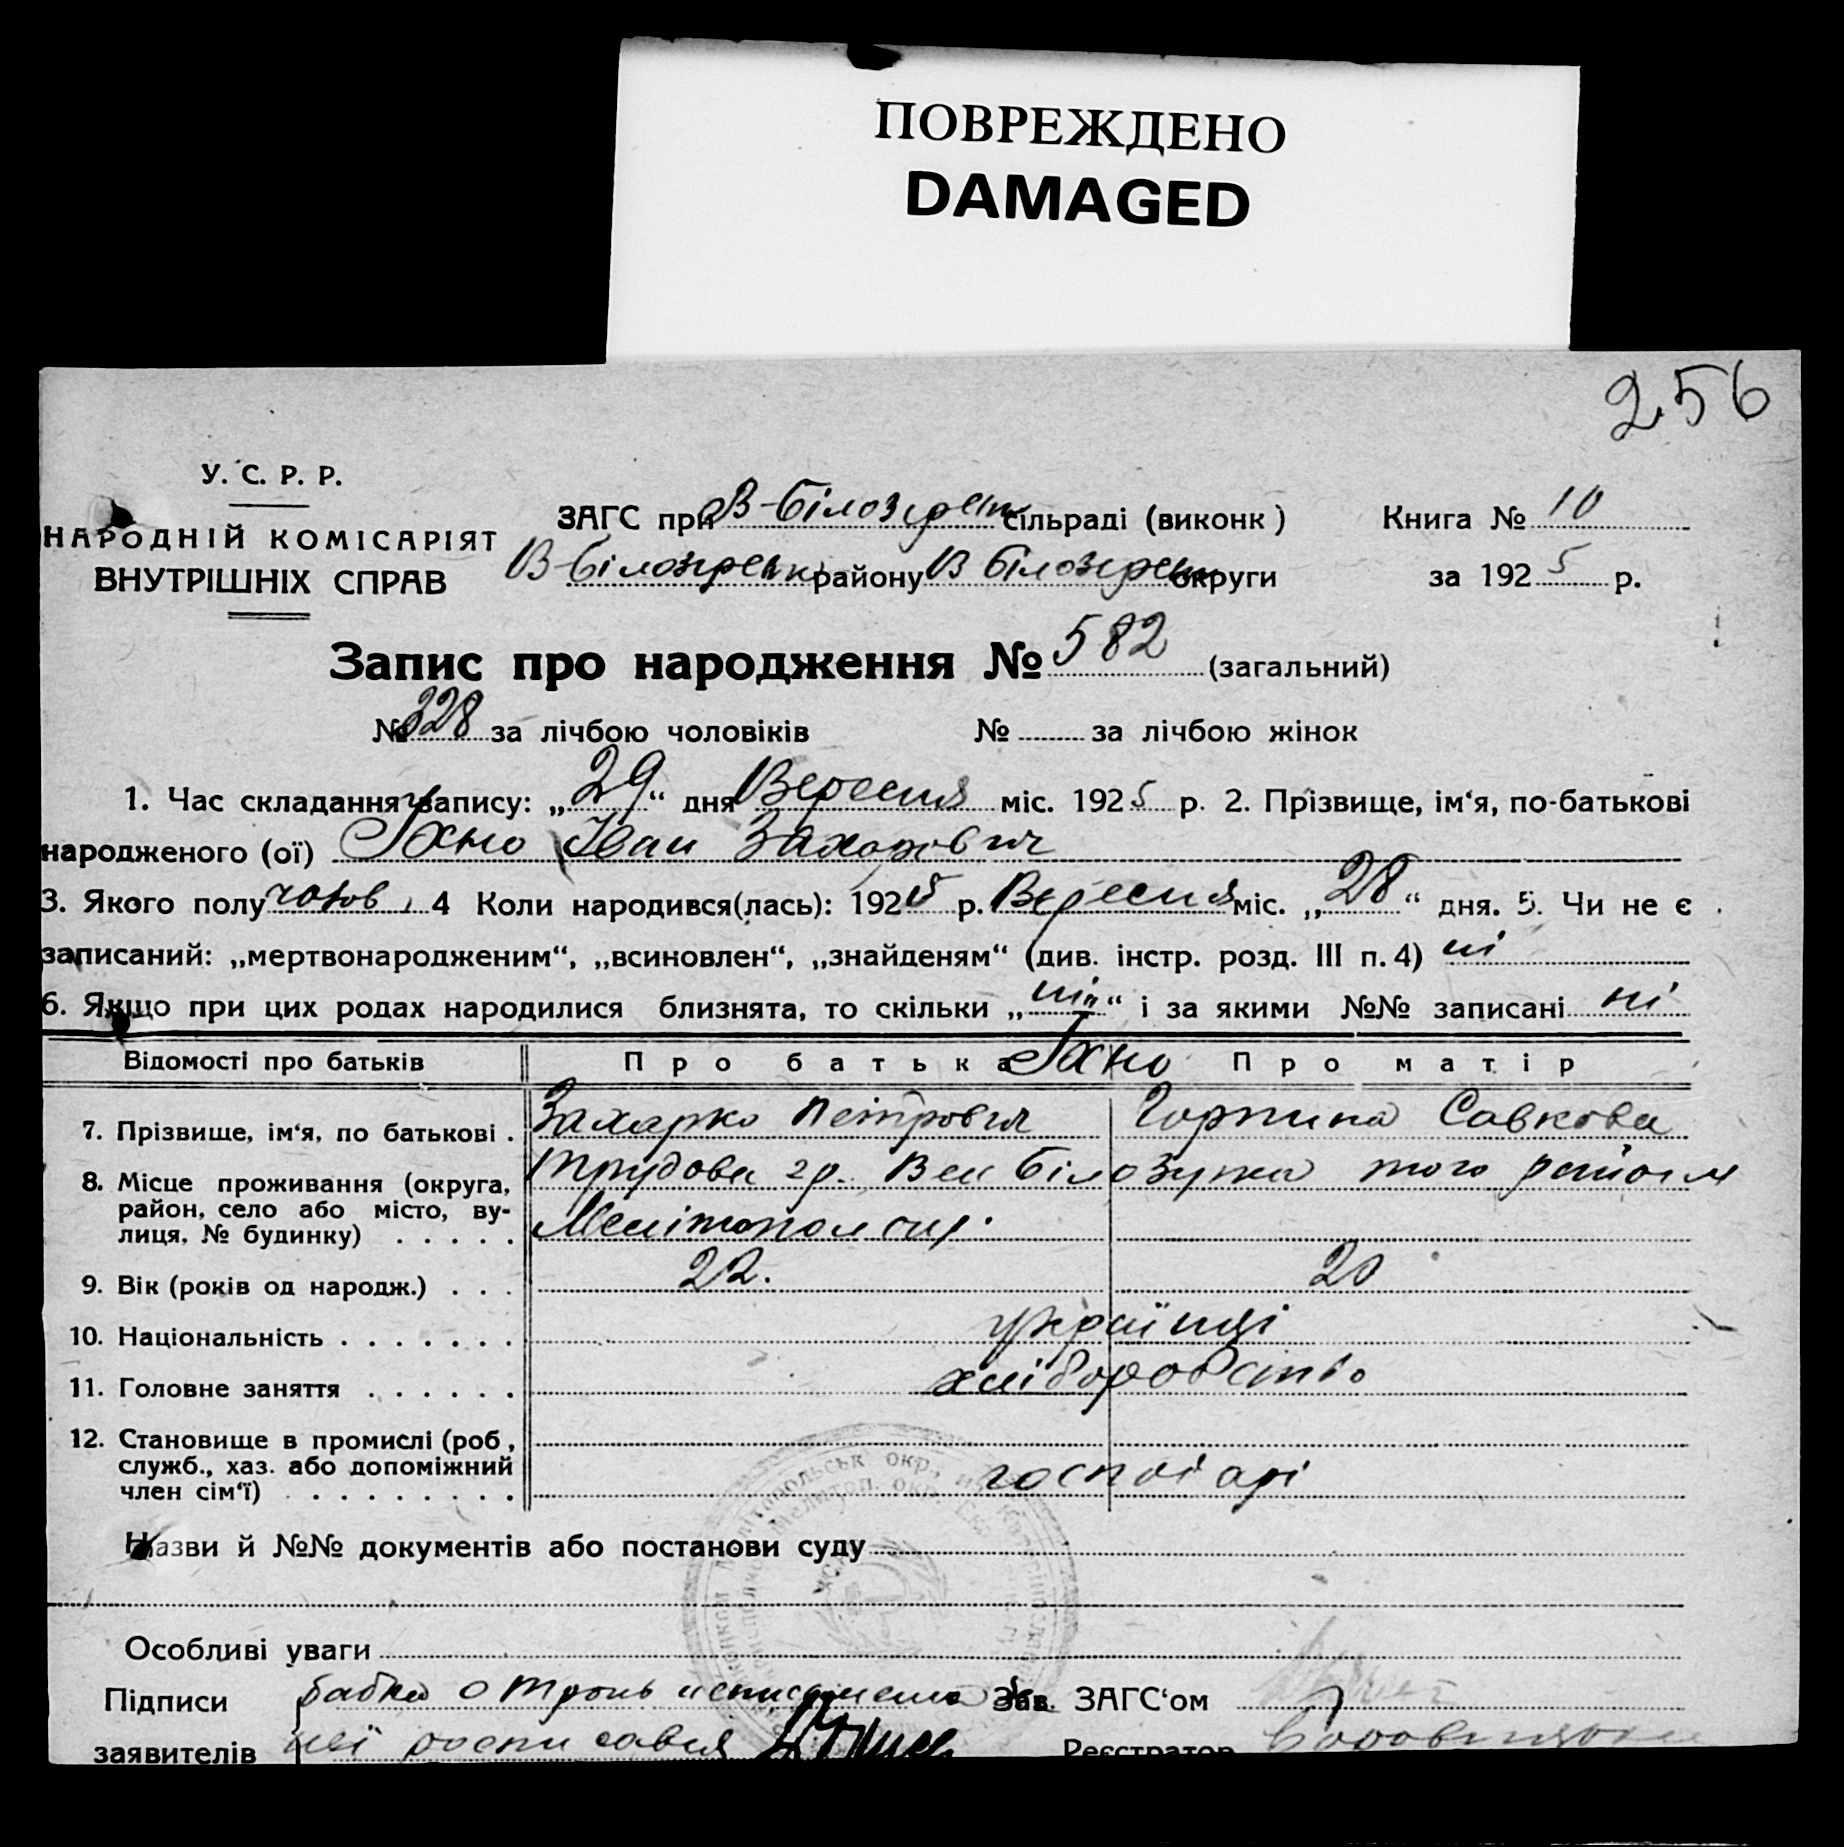 ПОВРЕЖДЕНО
DAMAGED
256
У. С. Р. Р.
НАРОДНІЙ КОМІСАРІЯТ
ВНУТРІШНІХ СПРАВ
ЗАГС при В-Білозерськ сільраді (виконк)
В-Білозерськ району В Білозерськ округи
Книга № 10
за 1925 р.
Запис про народження № 582 (загальний)
№ 328 за лічбою чоловіків № за лічбою жінок
1. Час складання запису: „29“ дня Вересня міс. 1925 р. 2. Прізвище, ім‘я, по-батькові
народженого (ої) Яхно Іван Захарович
3. Якого полу чолов, 4 Коли народився(лась): 1925 р. Вересня міс. „28“ дня. 5. Чи не є
записаний: „мертвонародженим“, „всиновлен“, „знайденям“ (див. інстр. розд. III п. 4) ні
6. Якщо при цих родах народилися близнята, то скільки „ні“ і за якими №№ записані ні
Відомості про батьків Про батька Яхно Про матір
7. Прізвище, ім‘я, по батькові . Захарко Петрович Горпина Савкова
8. Місце проживання (округа, район, село або місто, ву- лиця, № будинку) . . . . . Трудова гр. Вел Білозурка того района
Мелітополь окр.
9. Вік (років од народж.) . . . 22. 20
10. Національність . . . . . . . українці
11. Головне заняття . . . . . . хліборобство
12. Становище в промислі (роб, служб., хаз. або допоміжний член сім‘ї) . . . . . . . . . господарі
Назви й №№ документів або постанови суду
Особливі уваги
Підписи бабка неписьменна за Зав. ЗАГС‘ом
заявителів неї росписався Реєстратор